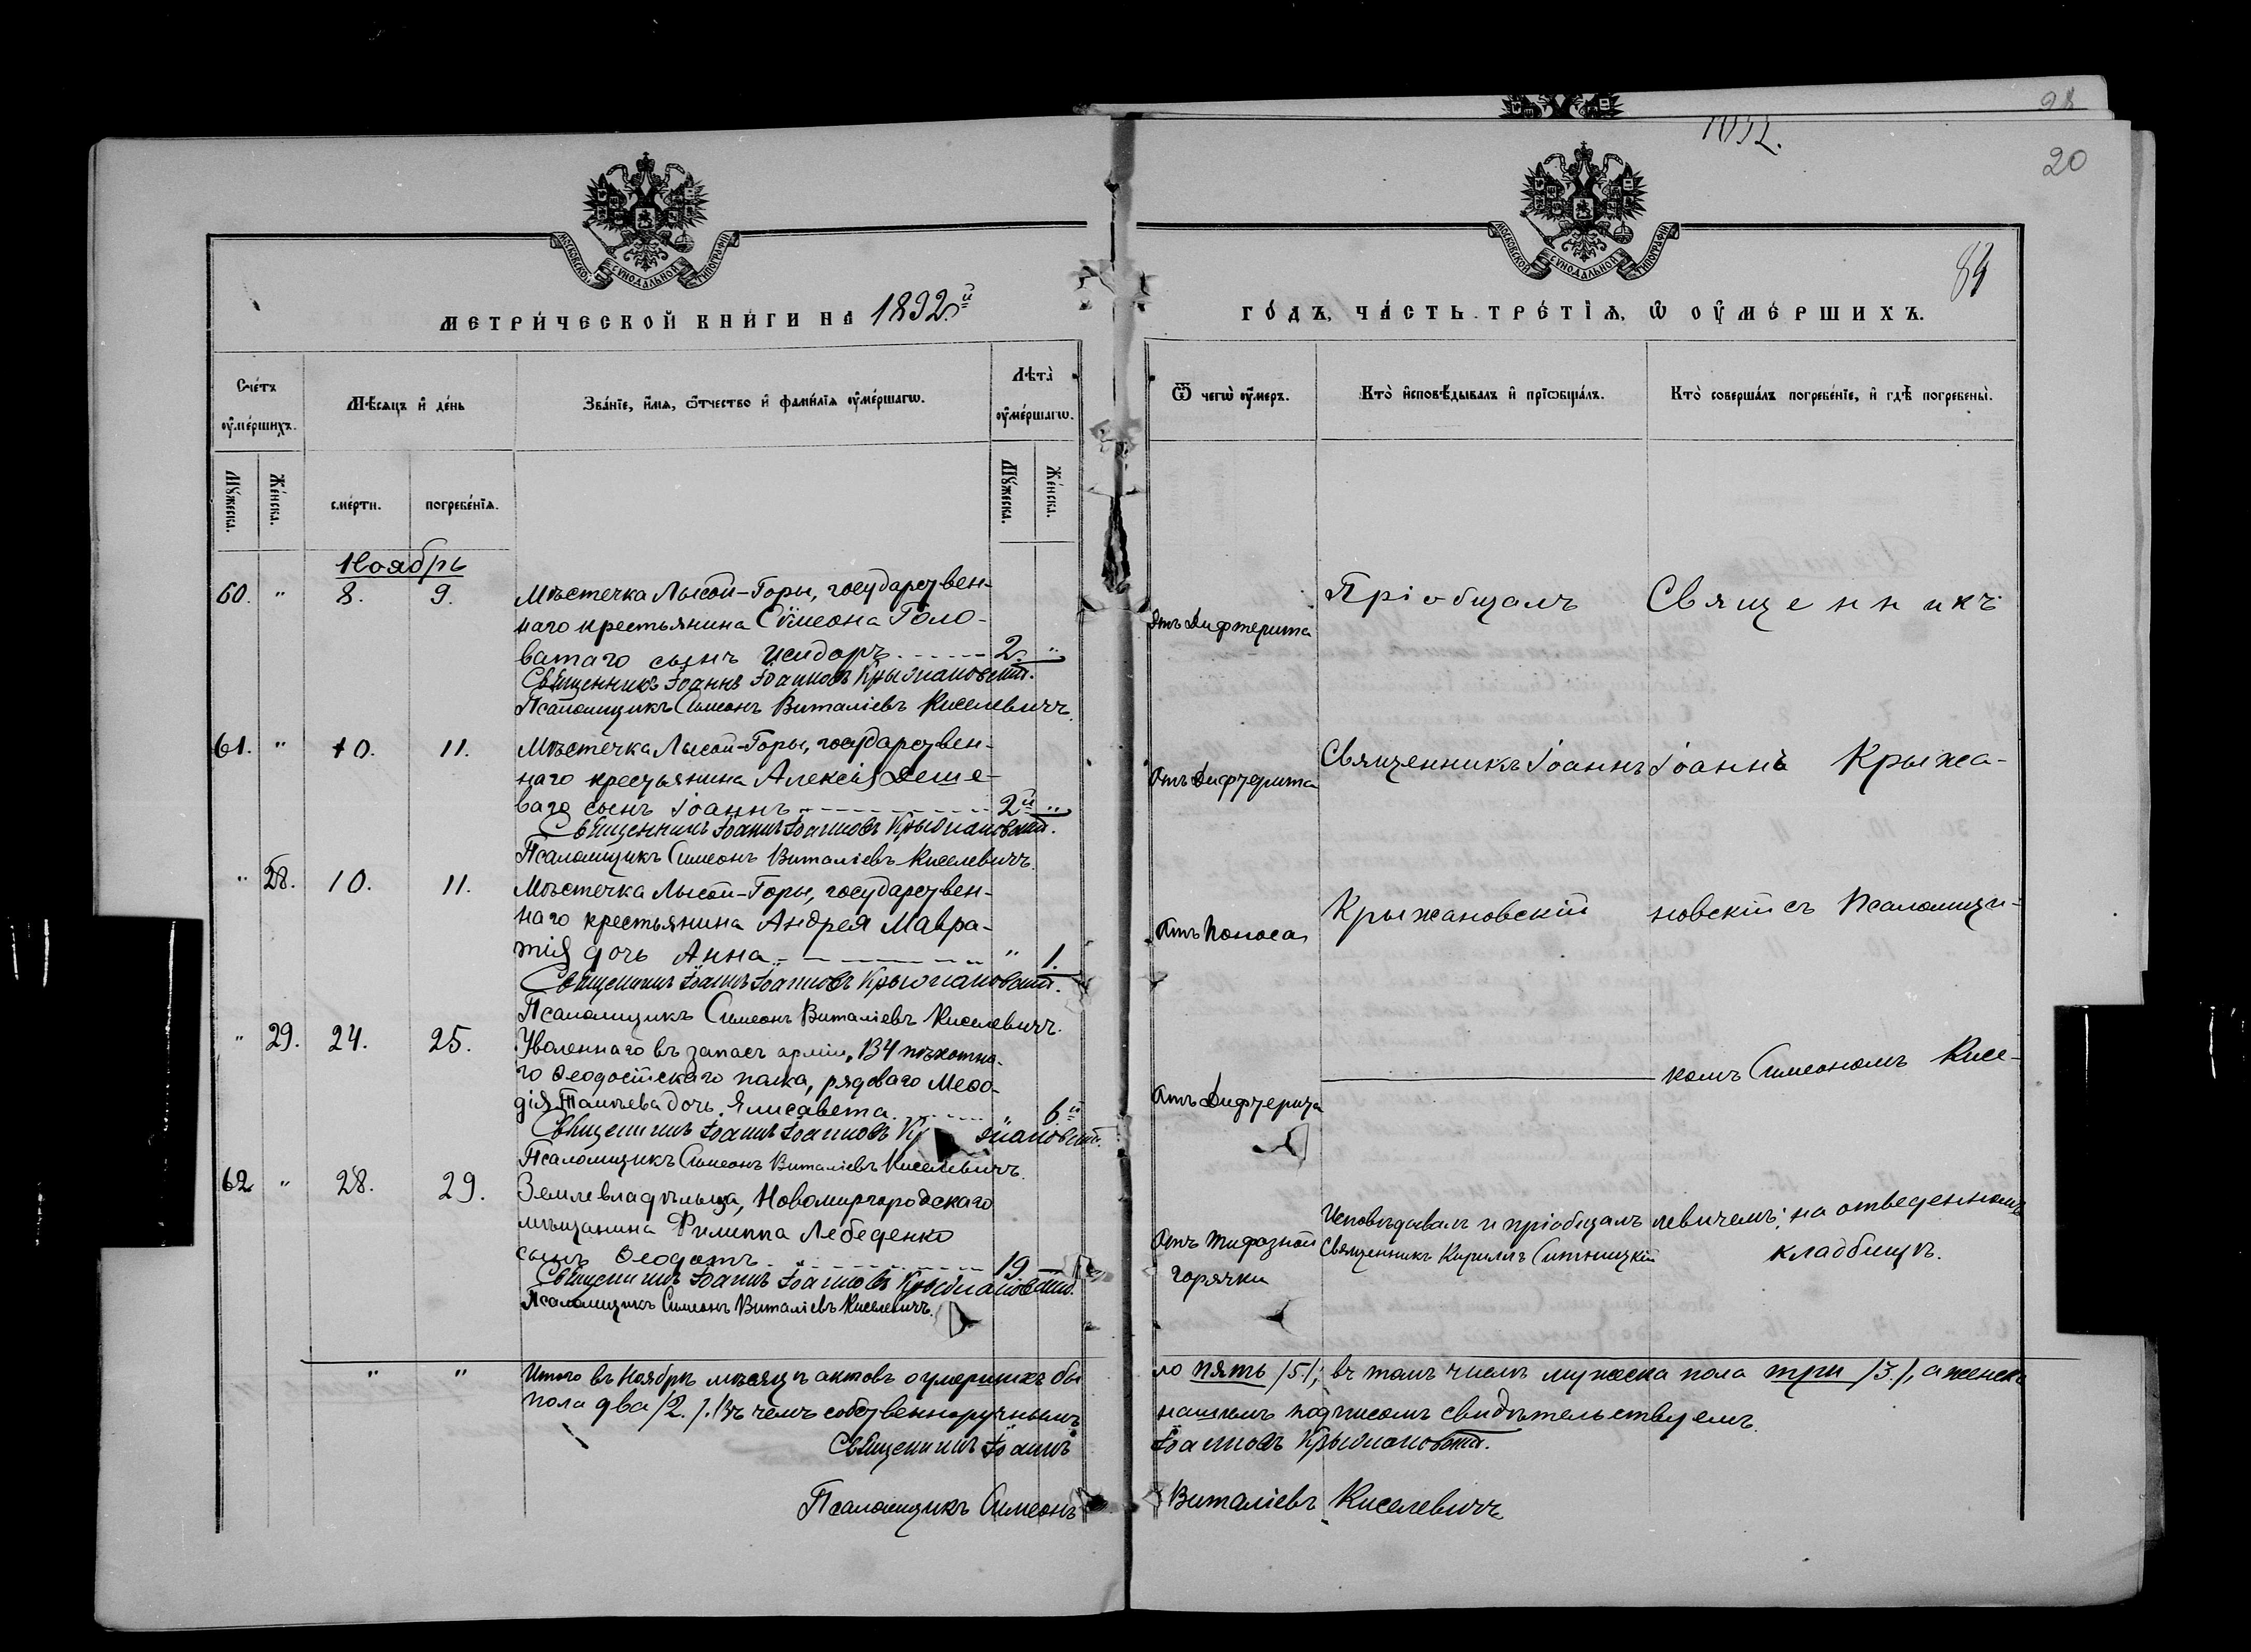 98
1892.
20
84
МОСКОВСКОЙ СУНОДАЛЬНОЙ ТИПОГРАФІИ
МОСКОВСКОЙ СУНОДАЛЬНОЙ ТИПОГРАФІИ
МЕТРИ́ЧЕСКОЙ КНИ́ГИ НА 1892й
ГО́ДЪ, ЧА́СТЬ ТРЕ́ТІѦ, Ѡ ОУ҆МЕ́РШИХЪ.
Сче́тъ оу҆ме́ршихъ.
Мѣ́сяцъ и҆ де́нь
Зва́ніе, и҆́мя, ѻ҆́тчество и҆ фами́лія оу҆ме́ршагѡ.
Лѣта̀ оу҆ме́ршагѡ.
Ѿ чегѡ̀ оу҆́меръ.
Кто̀ и҆сповѣ́дывалъ и҆ прїѡбща́лъ.
Кто̀ соверша́лъ погребе́ніе, и҆ гдѣ̀ погребены̀.
Му́жеска.
Же́нска.
сме́рти.
погребе́нія.
Му́жеска.
Же́нска.
Ноябрь
60. " 8. 9. Мѣстечка Лысой-Горы, государствен-
наго крестьянина Сѵмеона Голо-
ватаго сынъ Исидоръ 2. "
Священникъ Іоаннъ Іоанновъ Крыжановскій.
Псаломщикъ Симеонъ Виталіевъ Киселевичъ.
Отъ Дифтерита
Пріобщалъ
Священникъ
61. " 10. 11. Мѣстечка Лысой-Горы, государствен-
наго крестьянина Алексія Деше-
ваго сынъ Іоаннъ 2й "
Священникъ Іоаннъ Іоанновъ Крыжановскій.
Псаломщикъ Симеонъ Виталіевъ Киселевичъ.
Отъ Дифтерита
Священникъ Іоаннъ
Іоаннъ Крыжа-
" 28. 10. 11. Мѣстечка Лысой-Горы, государствен-
наго крестьянина Андрея Мавра-
тія дочь Анна " 1.
Священникъ Іоаннъ Іоанновъ Крыжановскій.
Псаломщикъ Симеонъ Виталіевъ Киселевичъ.
Отъ Поноса
Крыжановскій
новскій съ Псаломщи-
" 29. 24. 25. Уволеннаго въ запасъ арміи, 134 пѣхотна-
го Ѳеодосійскаго полка, рядоваго Меѳо-
дія дочь Елисавета " 6й
Священникъ Іоаннъ Іоанновъ Крыжановскій.
Псаломщикъ Симеонъ Виталіевъ Киселевичъ.
Отъ Дифтерита
комъ Симеономъ Кисе-
62 " 28. 29. Землевладѣльца, Новомиргородскаго
мѣщанина Филиппа Лебеденко
сынъ Ѳеодотъ 19
Священникъ Іоаннъ Іоанновъ Крыжановскій.
Псаломщикъ Симеонъ Виталіевъ Киселевичъ.
Отъ тифозной
горячки
Исповѣдывалъ и пріобщалъ
Священникъ Кирилъ Ситницкій
левичемъ; на отведенномъ
кладбищѣ.
" " Итого въ Ноябрѣ мѣсяцѣ актовъ о умершихъ бы
ло пять /5/; въ томъ числѣ мужеска пола три /3./, а женска
пола два /2./. Въ чемъ собственноручнымъ
нашимъ подписомъ свидѣтельствуемъ.
Священникъ Іоаннъ
Іоанновъ Крыжановскій.
Псаломщикъ Симеонъ
Виталіевъ Киселевичъ